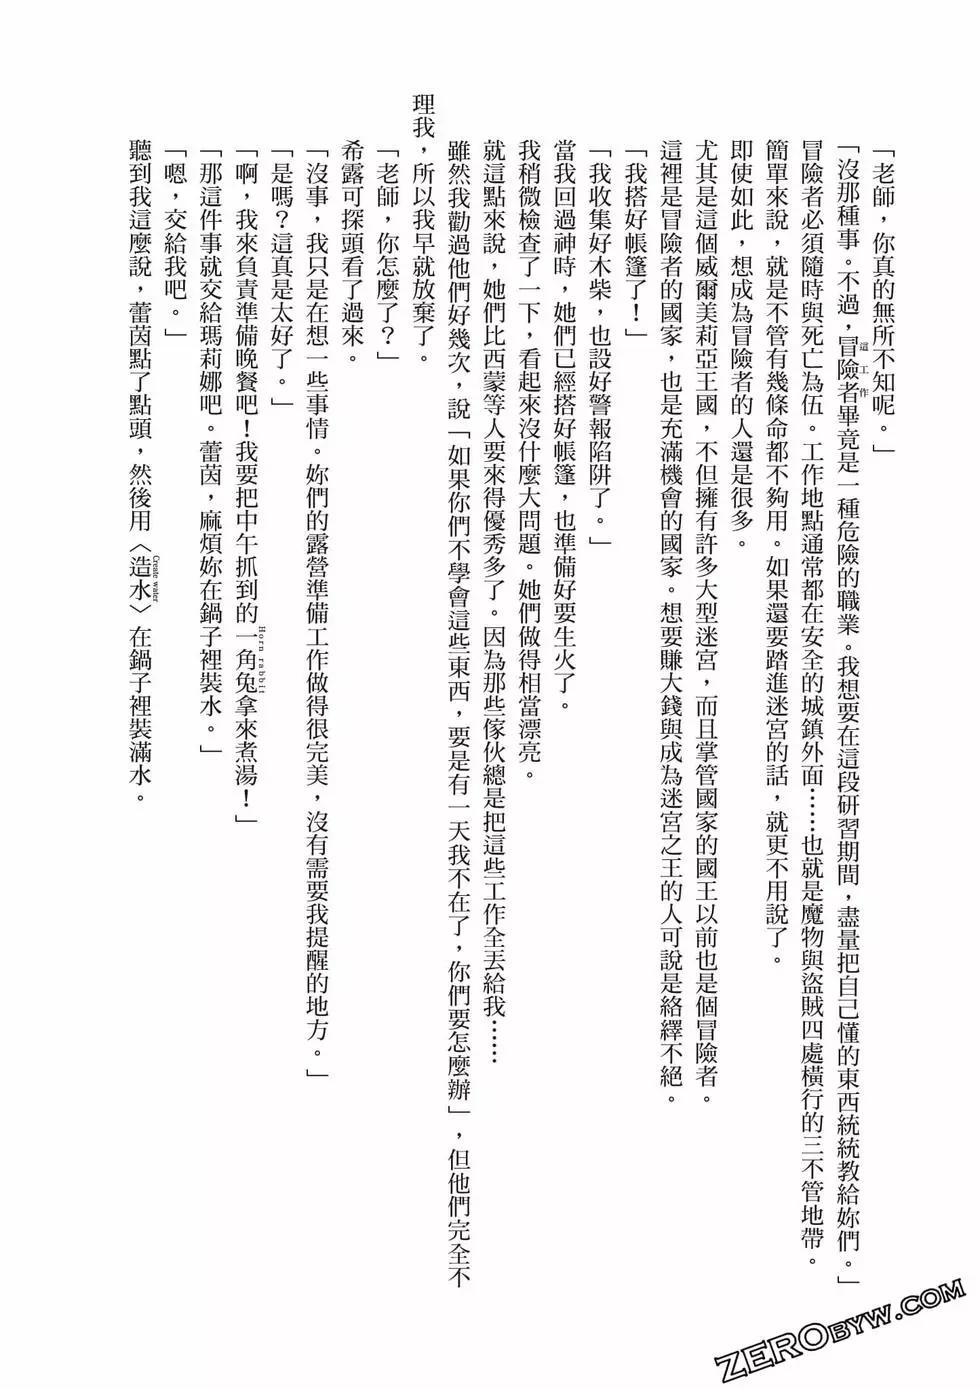 「老師，你真的無所不知呢。」
「沒那種事。不過，冒險者畢竟是一種危險的職業。我想要在這段研習期間，盡量把自己懂的東西統統教給妳們。」
這工作
冒險者必須隨時與死亡為伍。工作地點通常都在安全的城鎮外面……也就是魔物與盜賊四處橫行的三不管地帶。
簡單來說，就是不管有幾條命都不夠用。如果還要踏進迷宮的話，就更不用說了。
即使如此，想成為冒險者的人還是很多。
尤其是這個威爾美莉亞王國，不但擁有許多大型迷宮，而且掌管國家的國王以前也是個冒險者。
這裡是冒險者的國家，也是充滿機會的國家。想要賺大錢與成為迷宮之王的人可說是絡繹不絕。
「我搭好帳篷了！」
「我收集好木柴，也設好警報陷阱了。」
當我回過神時，她們已經搭好帳篷，也準備好要生火了。
我稍微檢查了一下，看起來沒什麼大問題。她們做得相當漂亮。
就這點來說，她們比西蒙等人要來得優秀多了。因為那些傢伙總是把這些工作全丟給我……
雖然我勸過他們好幾次，說「如果你們不學會這些東西，要是有一天我不在了，你們要怎麼辦」，但他們完全不
理我，所以我早就放棄了。
「老師，你怎麼了？」
希露可探頭看了過來。
「沒事，我只是在想一些事情。妳們的露營準備工作做得很完美，沒有需要我提醒的地方。」
「是嗎？這真是太好了。」
「啊，我來負責準備晚餐吧！我要把中午抓到的一角兔拿來煮湯！」
Horn rabbit
「那這件事就交給瑪莉娜吧。蕾茵，麻煩妳在鍋子裡裝水。」
「嗯，交給我吧。」
聽到我這麼說，蕾茵點了點頭，然後用〈造水〉在鍋子裡裝滿水。
Create water
ZEROBYW.COM